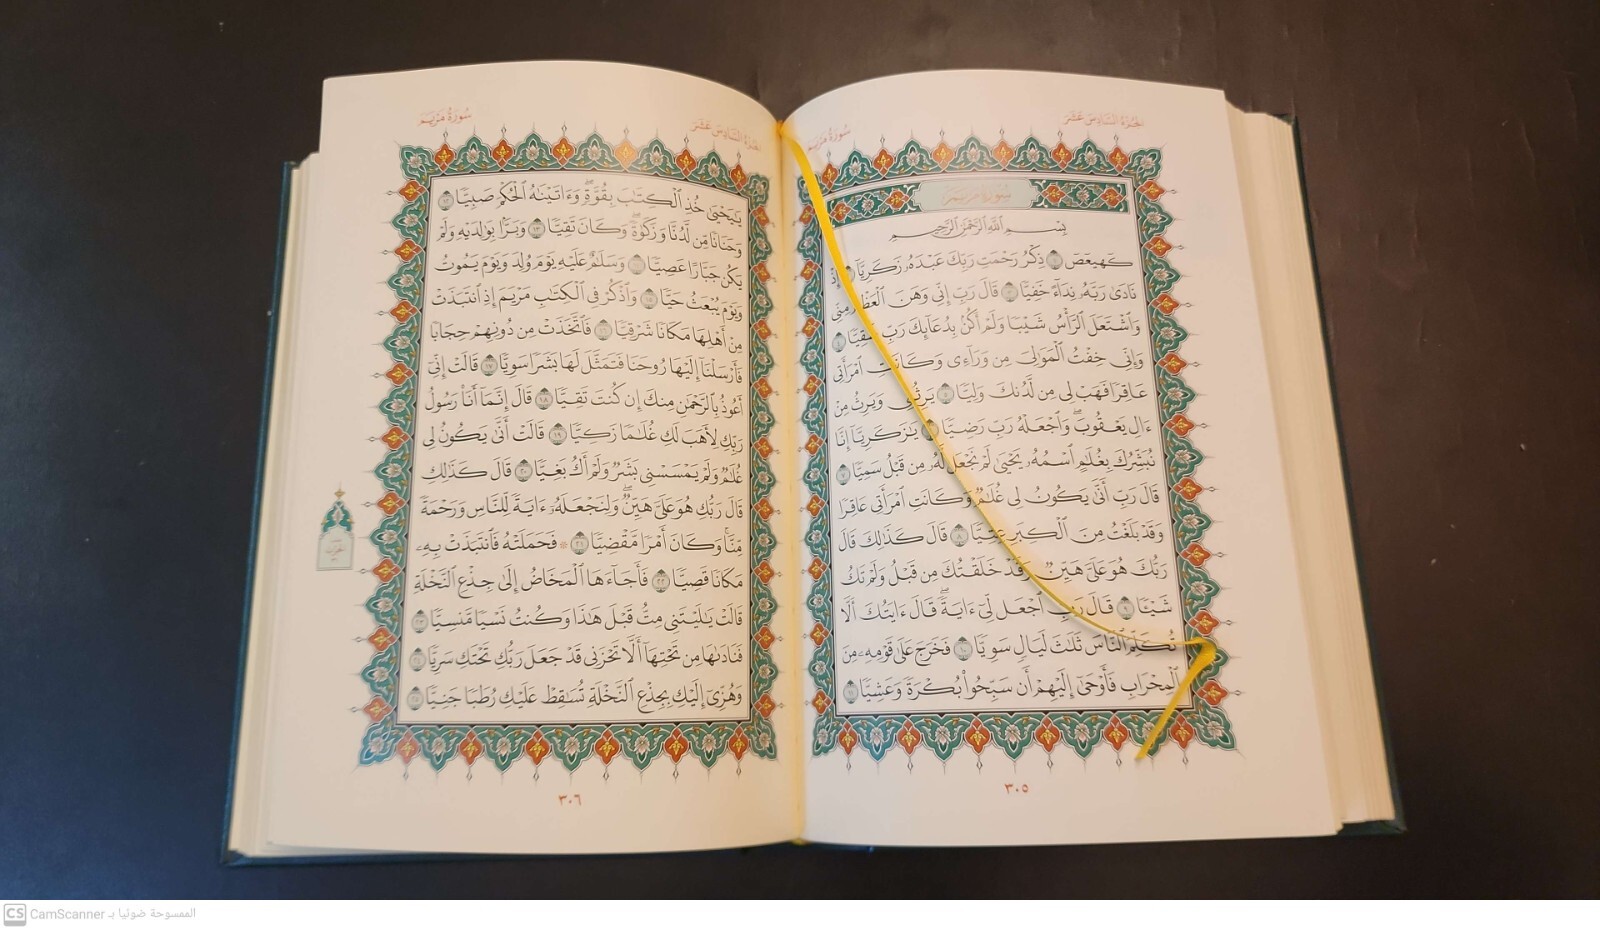 الجزء السادس عشر
سورة مريم
سورة مريم
بِسْمِ ٱللَّهِ ٱلرَّحْمَٰنِ ٱلرَّحِيمِ
كٓهيعٓصٓ ١ ذِكْرُ رَحْمَتِ رَبِّكَ عَبْدَهُۥ زَكَرِيَّآ ٢ إِذْ
نَادَىٰ رَبَّهُۥ نِدَآءً خَفِيًّا ٣ قَالَ رَبِّ إِنِّي وَهَنَ ٱلْعَظْمُ مِنِّي
وَٱشْتَعَلَ ٱلرَّأْسُ شَيْبًا وَلَمْ أَكُنۢ بِدُعَآئِكَ رَبِّ شَقِيًّا ٤
وَإِنِّي خِفْتُ ٱلْمَوَٰلِيَ مِن وَرَآءِي وَكَانَتِ ٱمْرَأَتِي
عَاقِرًا فَهَبْ لِي مِن لَّدُنكَ وَلِيًّا ٥ يَرِثُنِي وَيَرِثُ مِنْ
ءَالِ يَعْقُوبَ ۖ وَٱجْعَلْهُ رَبِّ رَضِيًّا ٦ يَٰزَكَرِيَّآ إِنَّا
نُبَشِّرُكَ بِغُلَٰمٍ ٱسْمُهُۥ يَحْيَىٰ لَمْ نَجْعَل لَّهُۥ مِن قَبْلُ سَمِيًّا ٧
قَالَ رَبِّ أَنَّىٰ يَكُونُ لِي غُلَٰمٌ وَكَانَتِ ٱمْرَأَتِي عَاقِرًا
وَقَدْ بَلَغْتُ مِنَ ٱلْكِبَرِ عِتِيًّا ٨ قَالَ كَذَٰلِكَ قَالَ
رَبُّكَ هُوَ عَلَيَّ هَيِّنٌ وَقَدْ خَلَقْتُكَ مِن قَبْلُ وَلَمْ تَكُ
شَيْـًٔا ٩ قَالَ رَبِّ ٱجْعَل لِّيٓ ءَايَةً ۚ قَالَ ءَايَتُكَ أَلَّا
تُكَلِّمَ ٱلنَّاسَ ثَلَٰثَ لَيَالٍ سَوِيًّا ١٠ فَخَرَجَ عَلَىٰ قَوْمِهِۦ مِنَ
ٱلْمِحْرَابِ فَأَوْحَىٰٓ إِلَيْهِمْ أَن سَبِّحُوا۟ بُكْرَةً وَعَشِيًّا ١١
٣٠٥
الجزء السادس عشر
سورة مريم
يَٰيَحْيَىٰ خُذِ ٱلْكِتَٰبَ بِقُوَّةٍ ۖ وَءَاتَيْنَٰهُ ٱلْحُكْمَ صَبِيًّا ١٢
وَحَنَانًا مِّن لَّدُنَّا وَزَكَوٰةً ۖ وَكَانَ تَقِيًّا ١٣ وَبَرًّۢا بِوَٰلِدَيْهِ وَلَمْ
يَكُن جَبَّارًا عَصِيًّا ١٤ وَسَلَٰمٌ عَلَيْهِ يَوْمَ وُلِدَ وَيَوْمَ يَمُوتُ
وَيَوْمَ يُبْعَثُ حَيًّا ١٥ وَٱذْكُرْ فِي ٱلْكِتَٰبِ مَرْيَمَ إِذِ ٱنتَبَذَتْ
مِنْ أَهْلِهَا مَكَانًا شَرْقِيًّا ١٦ فَٱتَّخَذَتْ مِن دُونِهِمْ حِجَابًا
فَأَرْسَلْنَآ إِلَيْهَا رُوحَنَا فَتَمَثَّلَ لَهَا بَشَرًا سَوِيًّا ١٧ قَالَتْ إِنِّيٓ
أَعُوذُ بِٱلرَّحْمَٰنِ مِنكَ إِن كُنتَ تَقِيًّا ١٨ قَالَ إِنَّمَآ أَنَا۠ رَسُولُ
رَبِّكِ لِأَهَبَ لَكِ غُلَٰمًا زَكِيًّا ١٩ قَالَتْ أَنَّىٰ يَكُونُ لِي
غُلَٰمٌ وَلَمْ يَمْسَسْنِي بَشَرٌ وَلَمْ أَكُ بَغِيًّا ٢٠ قَالَ كَذَٰلِكِ
قَالَ رَبُّكِ هُوَ عَلَيَّ هَيِّنٌ ۖ وَلِنَجْعَلَهُۥٓ ءَايَةً لِّلنَّاسِ وَرَحْمَةً
مِّنَّا ۚ وَكَانَ أَمْرًا مَّقْضِيًّا ٢١ ۞ فَحَمَلَتْهُ فَٱنتَبَذَتْ بِهِۦ
مَكَانًا قَصِيًّا ٢٢ فَأَجَآءَهَا ٱلْمَخَاضُ إِلَىٰ جِذْعِ ٱلنَّخْلَةِ
قَالَتْ يَٰلَيْتَنِي مِتُّ قَبْلَ هَٰذَا وَكُنتُ نَسْيًا مَّنسِيًّا ٢٣
فَنَادَىٰهَا مِن تَحْتِهَآ أَلَّا تَحْزَنِي قَدْ جَعَلَ رَبُّكِ تَحْتَكِ سَرِيًّا ٢٤
وَهُزِّيٓ إِلَيْكِ بِجِذْعِ ٱلنَّخْلَةِ تُسَٰقِطْ عَلَيْكِ رُطَبًا جَنِيًّا ٢٥
٣٠٦
CS CamScanner الممسوحة ضوئيا بـ